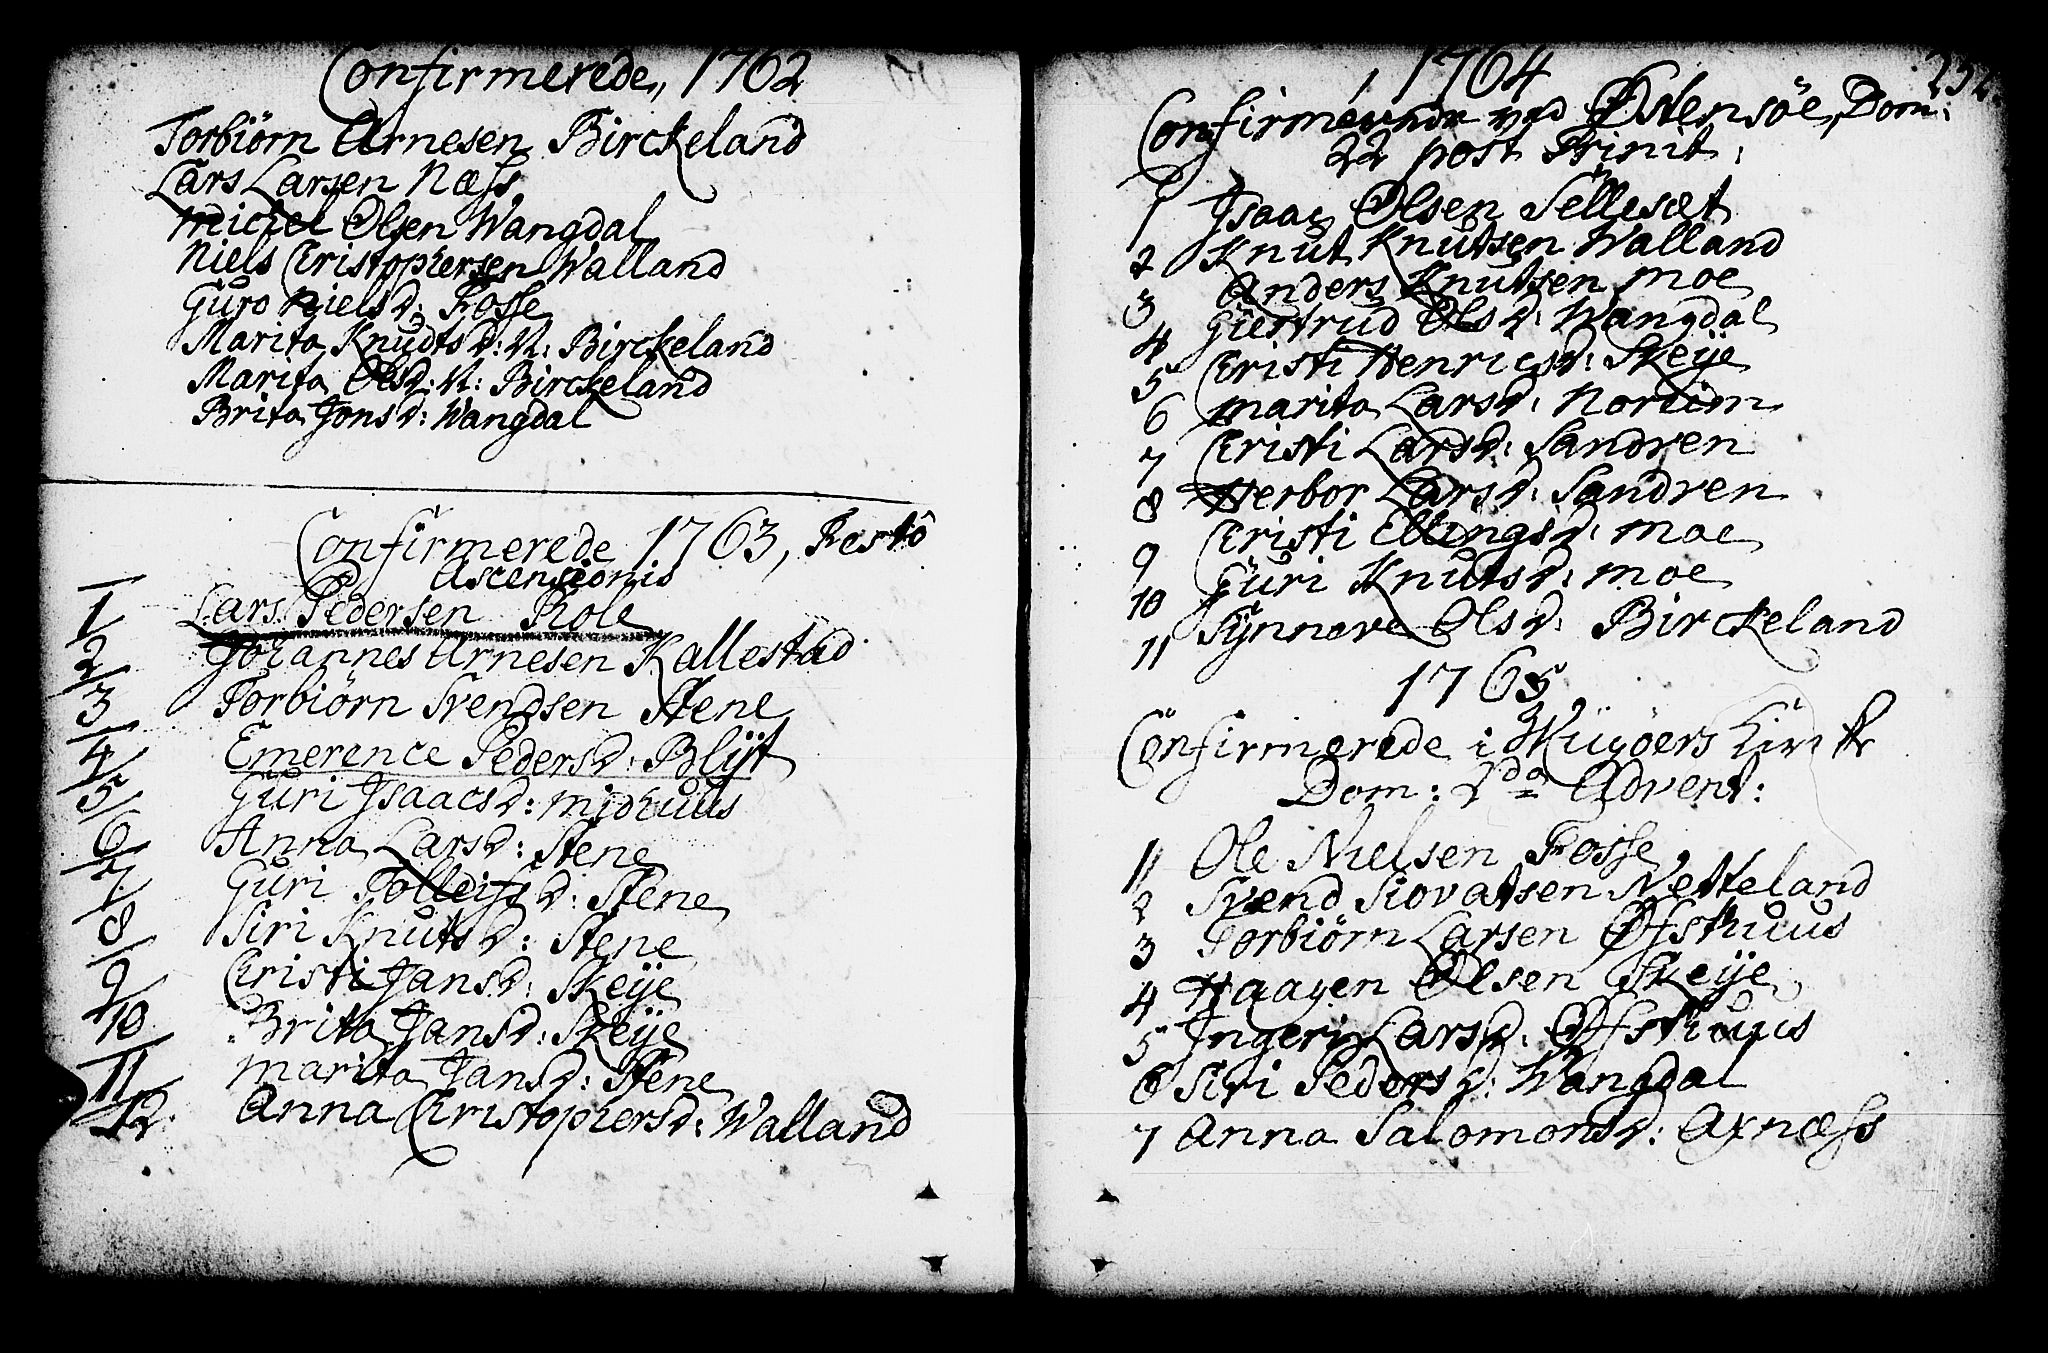 Confirmerede, 1762
Torbiörn Arnesen Birckeland
Lars Larsen Næss
Michel Olsen Wangdal
Niels Christophersen Walland
Guro Nielsd: Fosse
Marita Knudtsd: N: Birckeland
Marita Olsd: N: Birckeland
Brita Jonsd: Wangdal
Confirmerede 1763, Festo
Ascensionis
1 Lars Pedersen Role
2 Johannes Arnesen Kallestad
3 Torbiörn Svendsen Stene
4 Emerence Pedersd: Blijt
5 Guri Isaacsd: Midhuus
6 Anna Larsd: Stene
7 Guri Tolleifsd: Stene
8 Siri Knutsd: Stene
9 Christi Jansd: Skeije
10 Brita Jansd: Skeije
11 Marita Jansd: Stene
12 Anna Christophersd: Walland
1764
Confirmerede ved Östensöe, Dom:
22 post Trinit:
1 Isaac Olsen Sellesæt
2 Knut Knutsen Walland
3 Anders Knutsen Moe
4 Giertrud Olsd: Wangdal
5 Christi Henricsd: Skeije
6 Marita Larsd: Norheim
7 Christi Larsd: Sandven
8 Herbor Larsd: Sandven
9 Christi Ellingsd: Moe
10 Guri Knutsd: Moe
11 Synneve Olsd: Birckeland
1765
Confirmerede i Wiigöers Kircke
Dom: 2da Advent:
1 Ole Nielsen Fosse
2 Svend Siovatsen Netteland
3 Torbiörn Larsen Öfsthuus
4 Haagen Olsen Skeije
5 Ingeri Larsd: Öfsthuus
6 Siri Pedersd: Wangdal
7 Anna Salomonsd: Axnæss